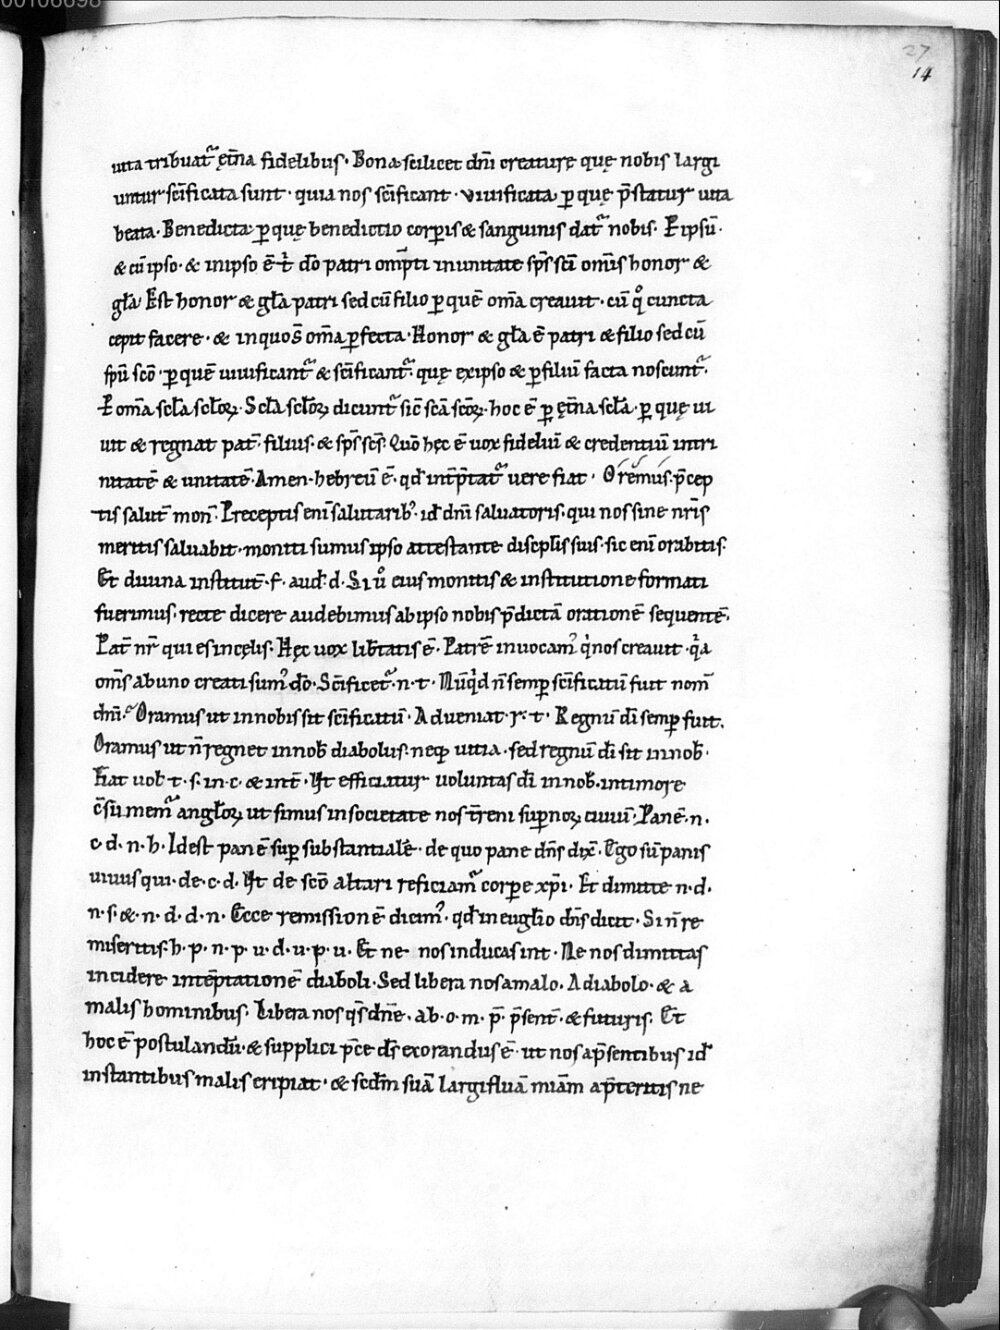 00106698
27
14
uita tribuat᷑ ęt̄na fidelibus. Bona scilicet dn̄i creaturę quę nobis largi
untur sc̄ificata sunt. quia nos sc̄ificant. viuificata ꝑ quę p̄statur uita
beata. Benedicta ꝑ quę benedictio corꝑis & sanguinis dat᷑ nobis. P ipsū.
& cū ipso. & in ipso ē t̄ dō patri omp̄ti in unitate sp̄s sc̄i omīs honor &
gła Est honor & gła patri sed cū filio ꝑ quē om̄a creauit. cū qͦ cuncta
cepit facere. & in quo s̄ om̄a ꝑfecta. Honor & gła ē patri & filio sed cū
spū scō. ꝑ quē uiuificant᷑ & sc̄ificant᷑. quę ex ipso & ꝑ filiū facta noscunt᷑.
P om̄a scła scłoꝝ. Scła scłoꝝ dicunt᷑ sic̄ sc̄a sc̄oꝝ. hoc ē ꝑ ęt̄na scła. ꝑ quę ui
uit & regnat pat̄. filius. & sp̄s sc̄s. Quō hęc ē uox fideliū & credentiū in tri
nitatē & unitatē. Amen. hebreū ē. qd̄ int̄p̄tat᷑ uere fiat. Orem̄us. p̄cep
tis salut̄ moñ. Preceptis enī salutaribꝰ. id dn̄i saluatoris. qui nos sine nr̄is
meritis saluabit. moniti sumus ipso attestante disciplīs suis. sic enī orabitis.
Et diuina institut̄. f. aud. d. Si uͦ eius monitis & institutione formati
fuerimus. recte dicere audebimus ab ipso nobis p̄dictā orationē sequentē.
Pat̄ nr̄ qui es in cęlis. Hęc uox lib̄tatis ē. Patrē inuocamꝰ qͥ nos creauit. qͥa
om̄s ab uno creati sumꝰ dō. Sc̄ificet᷑. n. t. Nūqͥd n̄ semꝑ sc̄ificatū fuit nom̄
dn̄i. Oramus ut in nobis sit sc̄ificatū. Adueniat. r. t. Regnū di semꝑ fuit.
Oramus ut n̄ regnet in nob̄ diabolus. neqꝫ uitia. sed regnū di sit in nob̄.
Fiat uol t. s. in. c. & in t̄. Ut efficiatur uoluntas di in nob̄. in timore
c̄sū mem᷑ angłoꝝ ut simus in societate nos t̄reni suꝑnoꝝ ciuiū. Panē. n.
c. d. n. h. Id est panē suꝑ substantialē. de quo pane dn̄s dix̄. Ego sū panis
uiuus qui. de. c. d. Ut de scō altari reficiam᷑ corꝑe xp̄i. Et dimitte n. d.
n. s. &. n. d. d. n. Ecce remissionē dicimꝰ. qd̄ in eugłio dn̄s dicit. Si n̄ re
miseritis. h. p. n. p. u. d. u. p. u. Et ne nos inducas int. Ne nos dimittas
incidere in tēptationē diaboli. Sed libera nos a malo. A diabolo. & a
malis hominibus. Libera nos qs̄ dn̄e. ab. o. m. p̄. p̄sent̄. & futuris. Et
hoc ē postulandū. & supplici p̄ce ds̄ exorandus ē. ut nos a p̄sentibus id
instantibus malis eripiat. & scdm̄ suā largifluā miām a p̄teritis ne